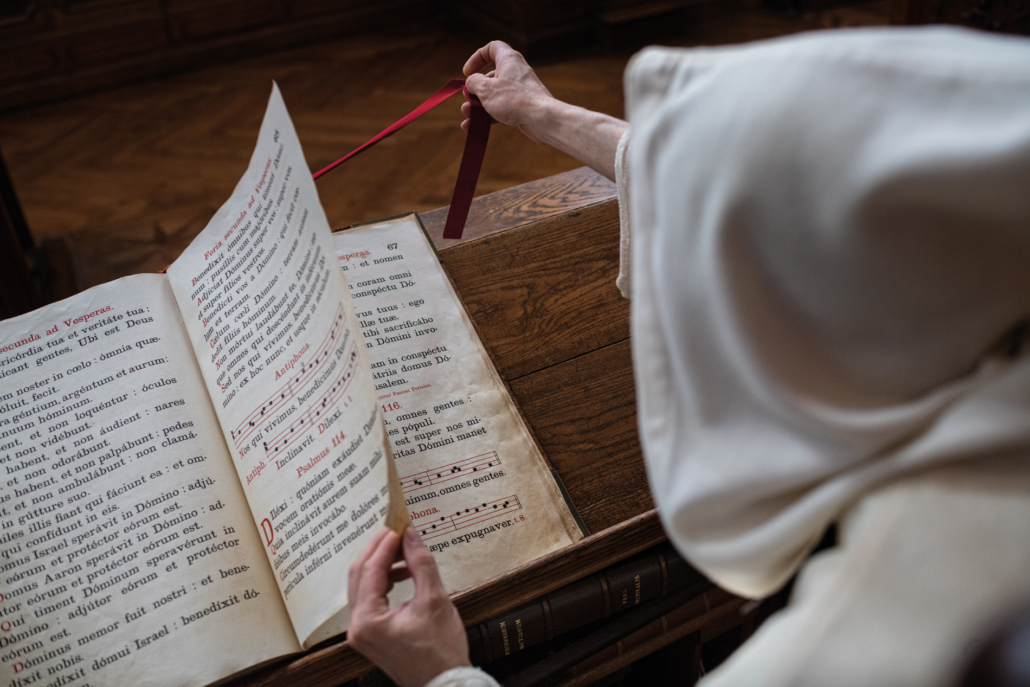 secunda ad Vesperas.
ricórdia tua et veritáte tua :
icant gentes, Ubi est Deus
em noster in cœlo : ómnia quæ-
óluit, fecit.
ra géntium, argéntum et aurum:
nuum hóminum.
ent, et non loquéntur : óculos
et non vidébunt.
habent, et non áudient : nares
, et non odorábunt.
us habent, et non palpábunt : pedes
t, et non ambulábunt : non clamá-
in gútture suo.
es illis fiant qui fáciunt ea : et om-
qui confídunt in eis.
omus Israel sperávit in Dómino : adjú-
protéctor eórum est.
omus Aaron sperávit in Dómino : ad-
eórum et protéctor eórum est.
Qui timent Dóminum speravérunt in
Dómino : adjútor eórum et protéctor
eórum est.
Dóminus memor fuit nostri : et bene-
díxit nobis.
Benedíxit dómui Israel : benedíxit dó-
Feria secunda ad Vesperas. 68
Benedíxit ómnibus qui timent Dómi-
num : pusíllis cum majóribus.
Adjíciat Dóminus super vos : super vos
et super fílios vestros.
Benedícti vos a Dómino : qui fecit cœ-
lum et terram.
Cœlum cœli Dómino : terram autem
dedit fíliis hóminum.
Non mórtui laudábunt te, Dómine :
que omnes qui descéndunt in
Sed nos qui vívimus, benedícimus Dó-
mino : ex hoc nunc, et usque in sǽculum.
Antiphona
Nos qui vívimus, benedícimus Dómino.
Antiph. Inclinavit. Diléxi.
Psalmus 114.
Diléxi : quóniam exáudiet Dóminus
vocem oratiónis meæ.
Quia inclinávit aurem suam mihi
diébus meis invocábo.
Circumdedérunt me dolóres mortis
perícula inférni invenérunt
speras. 67
: et nomen
coram omni
conspéctu Dó-
vus tuus : ego
llæ tuæ.
tibi sacrificábo
Dómini invo-
am in conspéctu
átriis domus Dó-
salem.
116.
, omnes gentes :
es pópuli.
est super nos mi-
Dómini manet
minum, omnes gentes.
phona.
æpe expugnaver. t.8.